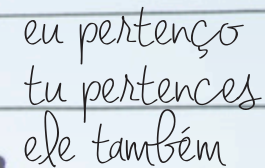 eu pertenço
tu pertences
ele também